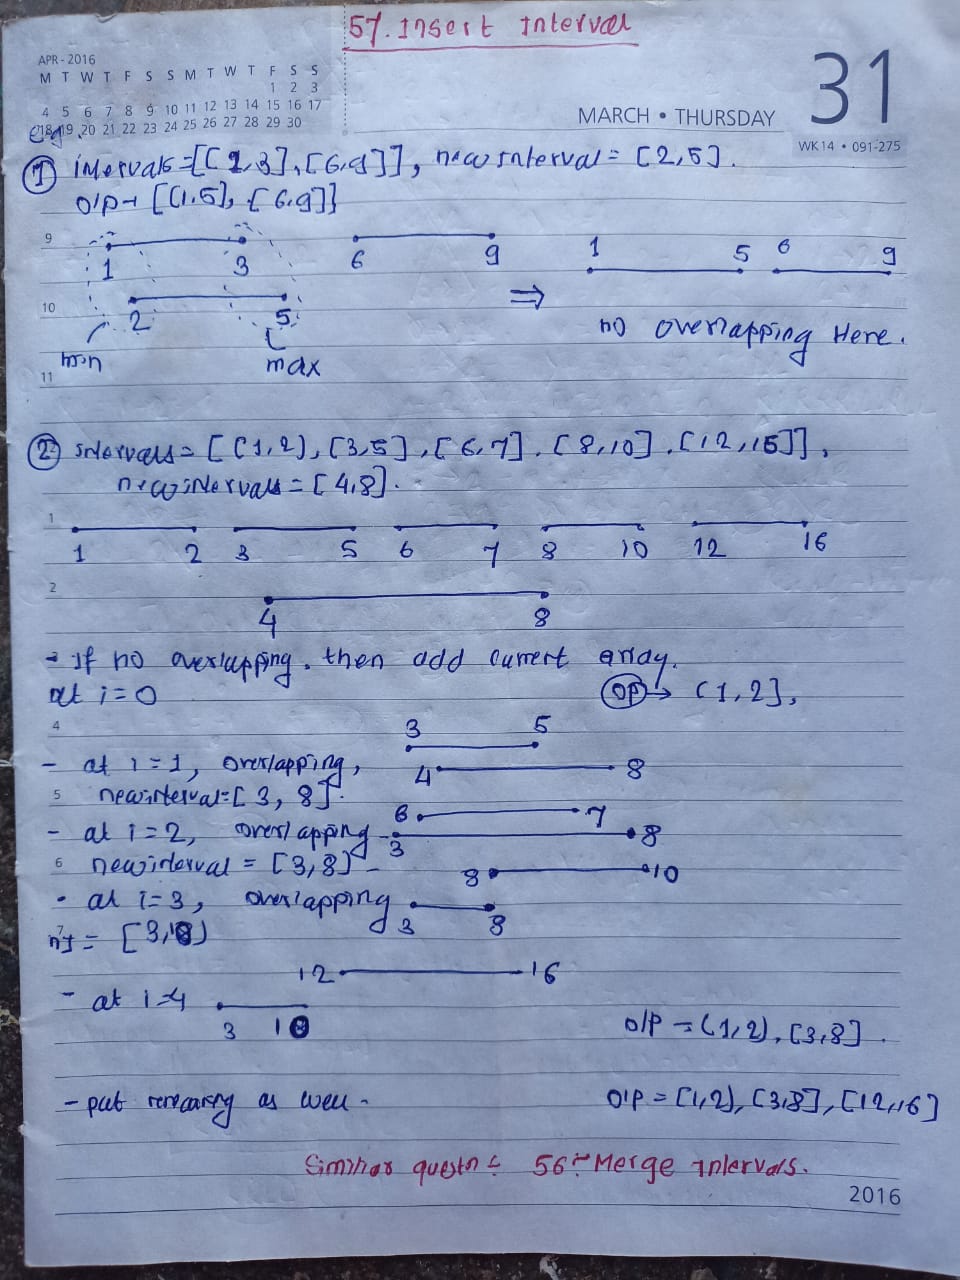 57. Insert Interval
APR - 2016
M T W T F S S M T W T F S S
1 2 3
4 5 6 7 8 9 10 11 12 13 14 15 16 17
18 19 20 21 22 23 24 25 26 27 28 29 30
31
MARCH • THURSDAY
WK 14 • 091-275
eg.
① intervals=[[1,3],[6,9]], newInterval= [2,5].
o/p→ [[1,5], [6,9]]
9
1 3 6 9 1 5 6 9
10
2 5 ⇒ no overlapping Here.
min max
11
② intervals= [[1,2),[3,5],[6,7],[8,10],[12,15]],
newintervals=[4,8].
1
1 2 3 5 6 7 8 10 12 16
2
4 8
- If no overlapping. then add current array.
at i=0 OP→ [1,2],
4
3 5
- at i=1, overlapping, 4 8
5 newinterval=[3, 8].
6 7
- at i=2, overlapping 3 8
6 newinterval = [3,8]-
8 10
- at i=3, overlapping 3 8
7
nI= [3,10)
12 16
- at i=4
3 10
o/p = (1,2), [3,8].
- put remaining as well- o/p = [1,2), [3,8], [12,16]
Similar questn: 56:- Merge Intervals.
2016